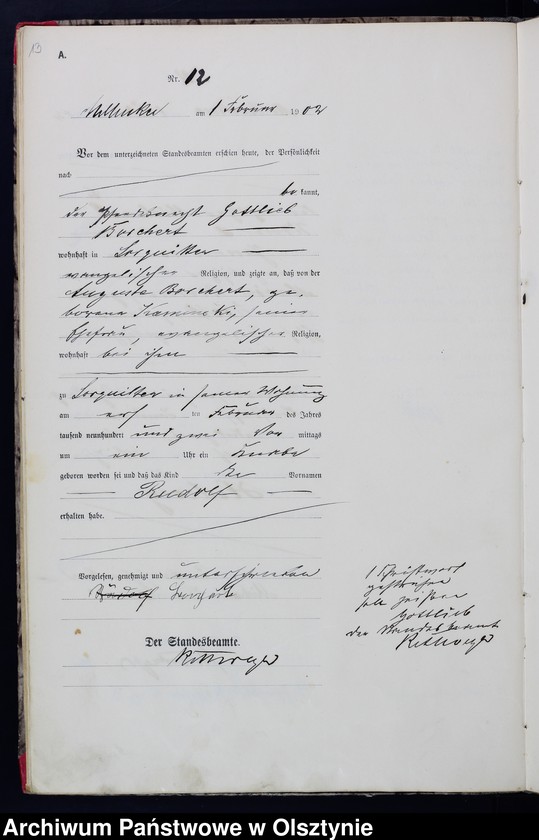 13
A.
Nr. 12
am 1 Februar 1902
Vor dem unterzeichneten Standesbeamten erschien heute, der Persönlichkeit
nach
be kannt,
der Pferdeknecht Gottlieb
Borchert
wohnhaft in Sorquitten
evangelischer Religion, und zeigte an, daß von der
Auguste Borchert, ge-
borene Kaminski, seiner
Ehefrau, evangelischer Religion,
wohnhaft bei ihm
zu Sorquitten in seiner Wohnung
am ersten Februar des Jahres
tausend neunhundert und zwei Vor mittags
um ein Uhr ein Knabe
geboren worden sei und daß das Kind den Vornamen
Rudolf
erhalten habe.
Vorgelesen, genehmigt und unterschrieben
Rudolf
Der Standesbeamte.
1 Schriftwort
gestrichen
soll heißen
Gottlieb
Der Standesbeamte
Archiwum Państwowe w Olsztynie